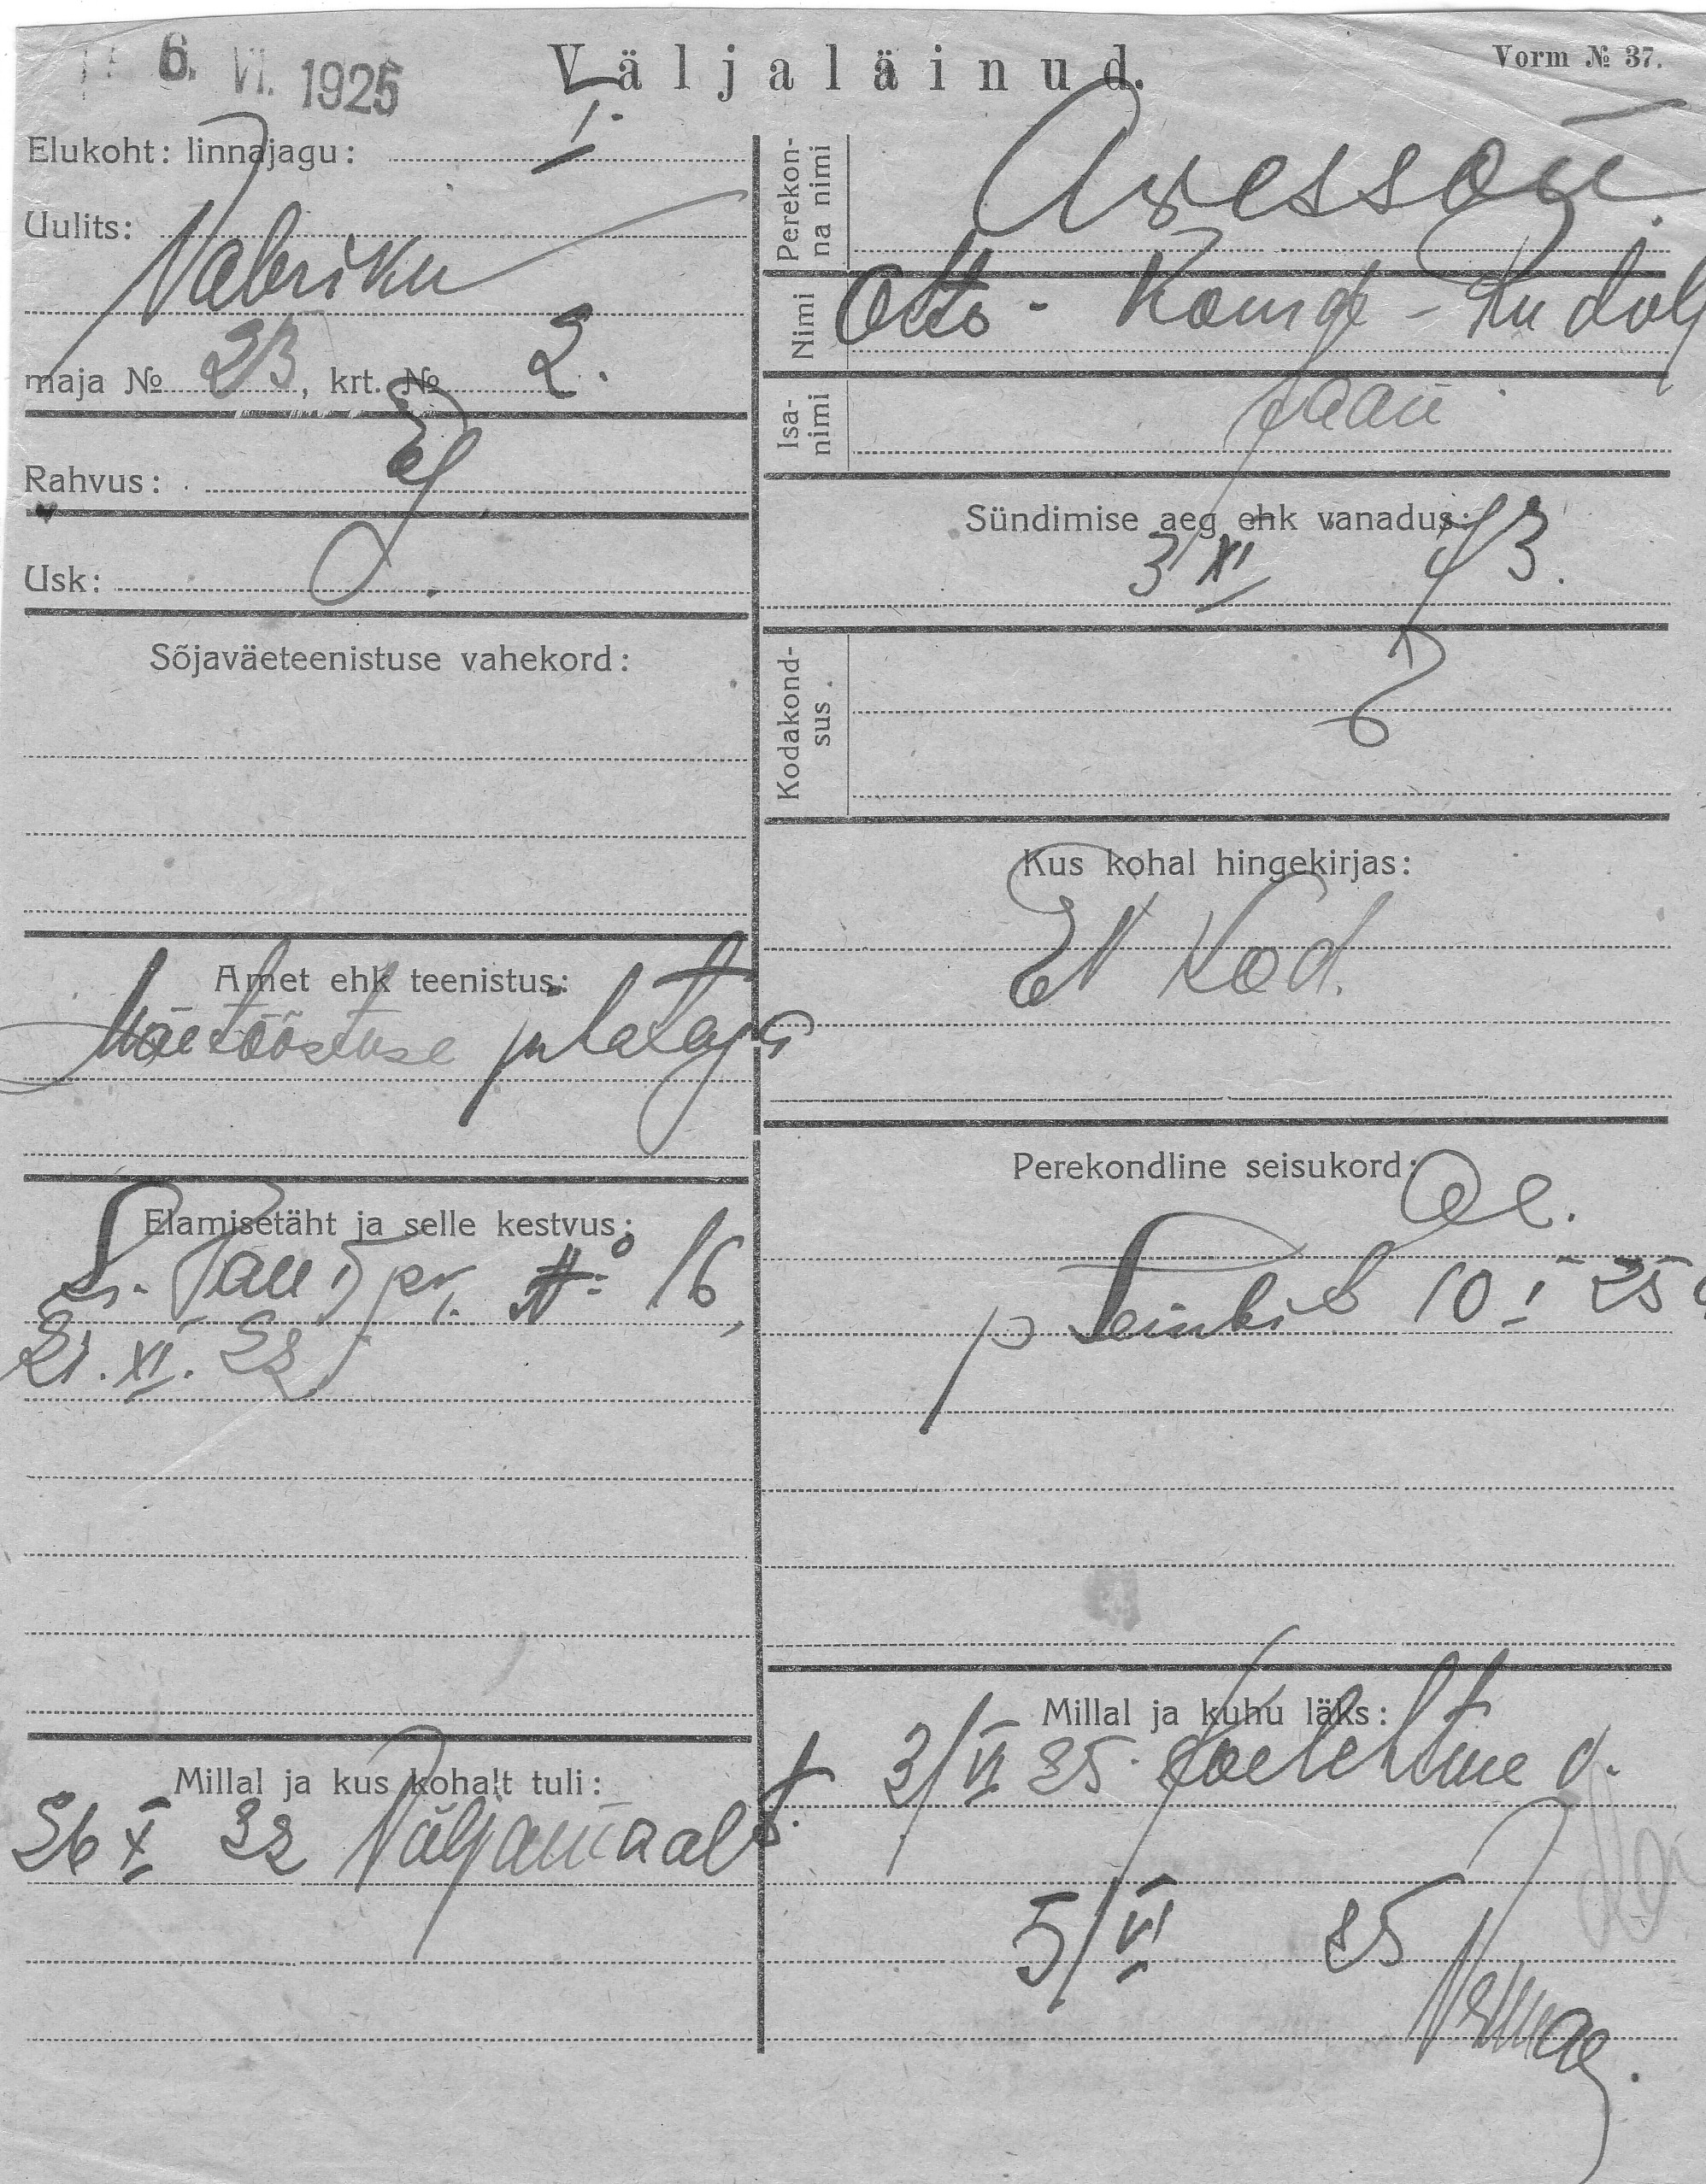 6. VI. 1925
Väljaläinud.
Vorm № 37.
Elukoht: linnajagu: I.
Uulits:
Vabriku
maja № 23, krt. № 2.
Rahvus: E
Usk:
Sõjaväeteenistuse vahekord:
Amet ehk teenistus:
Mäetööstuse juhataja
Elamisetäht ja selle kestvus:
16
21. XI. 22
Millal ja kus kohalt tuli:
26 X 22 Väljamaalt.
Perekonna nimi
Nimi Otto - - Rudolf
Isanimi Jaan
Sündimise aeg ehk vanadus:
3/XI 93.
Kodakondsus
Kus kohal hingekirjas:
Est Kod.
Perekondline seisukord:
10 I 25
Millal ja kuhu läks:
3/VI 25. Joelehtme
5/VI 25